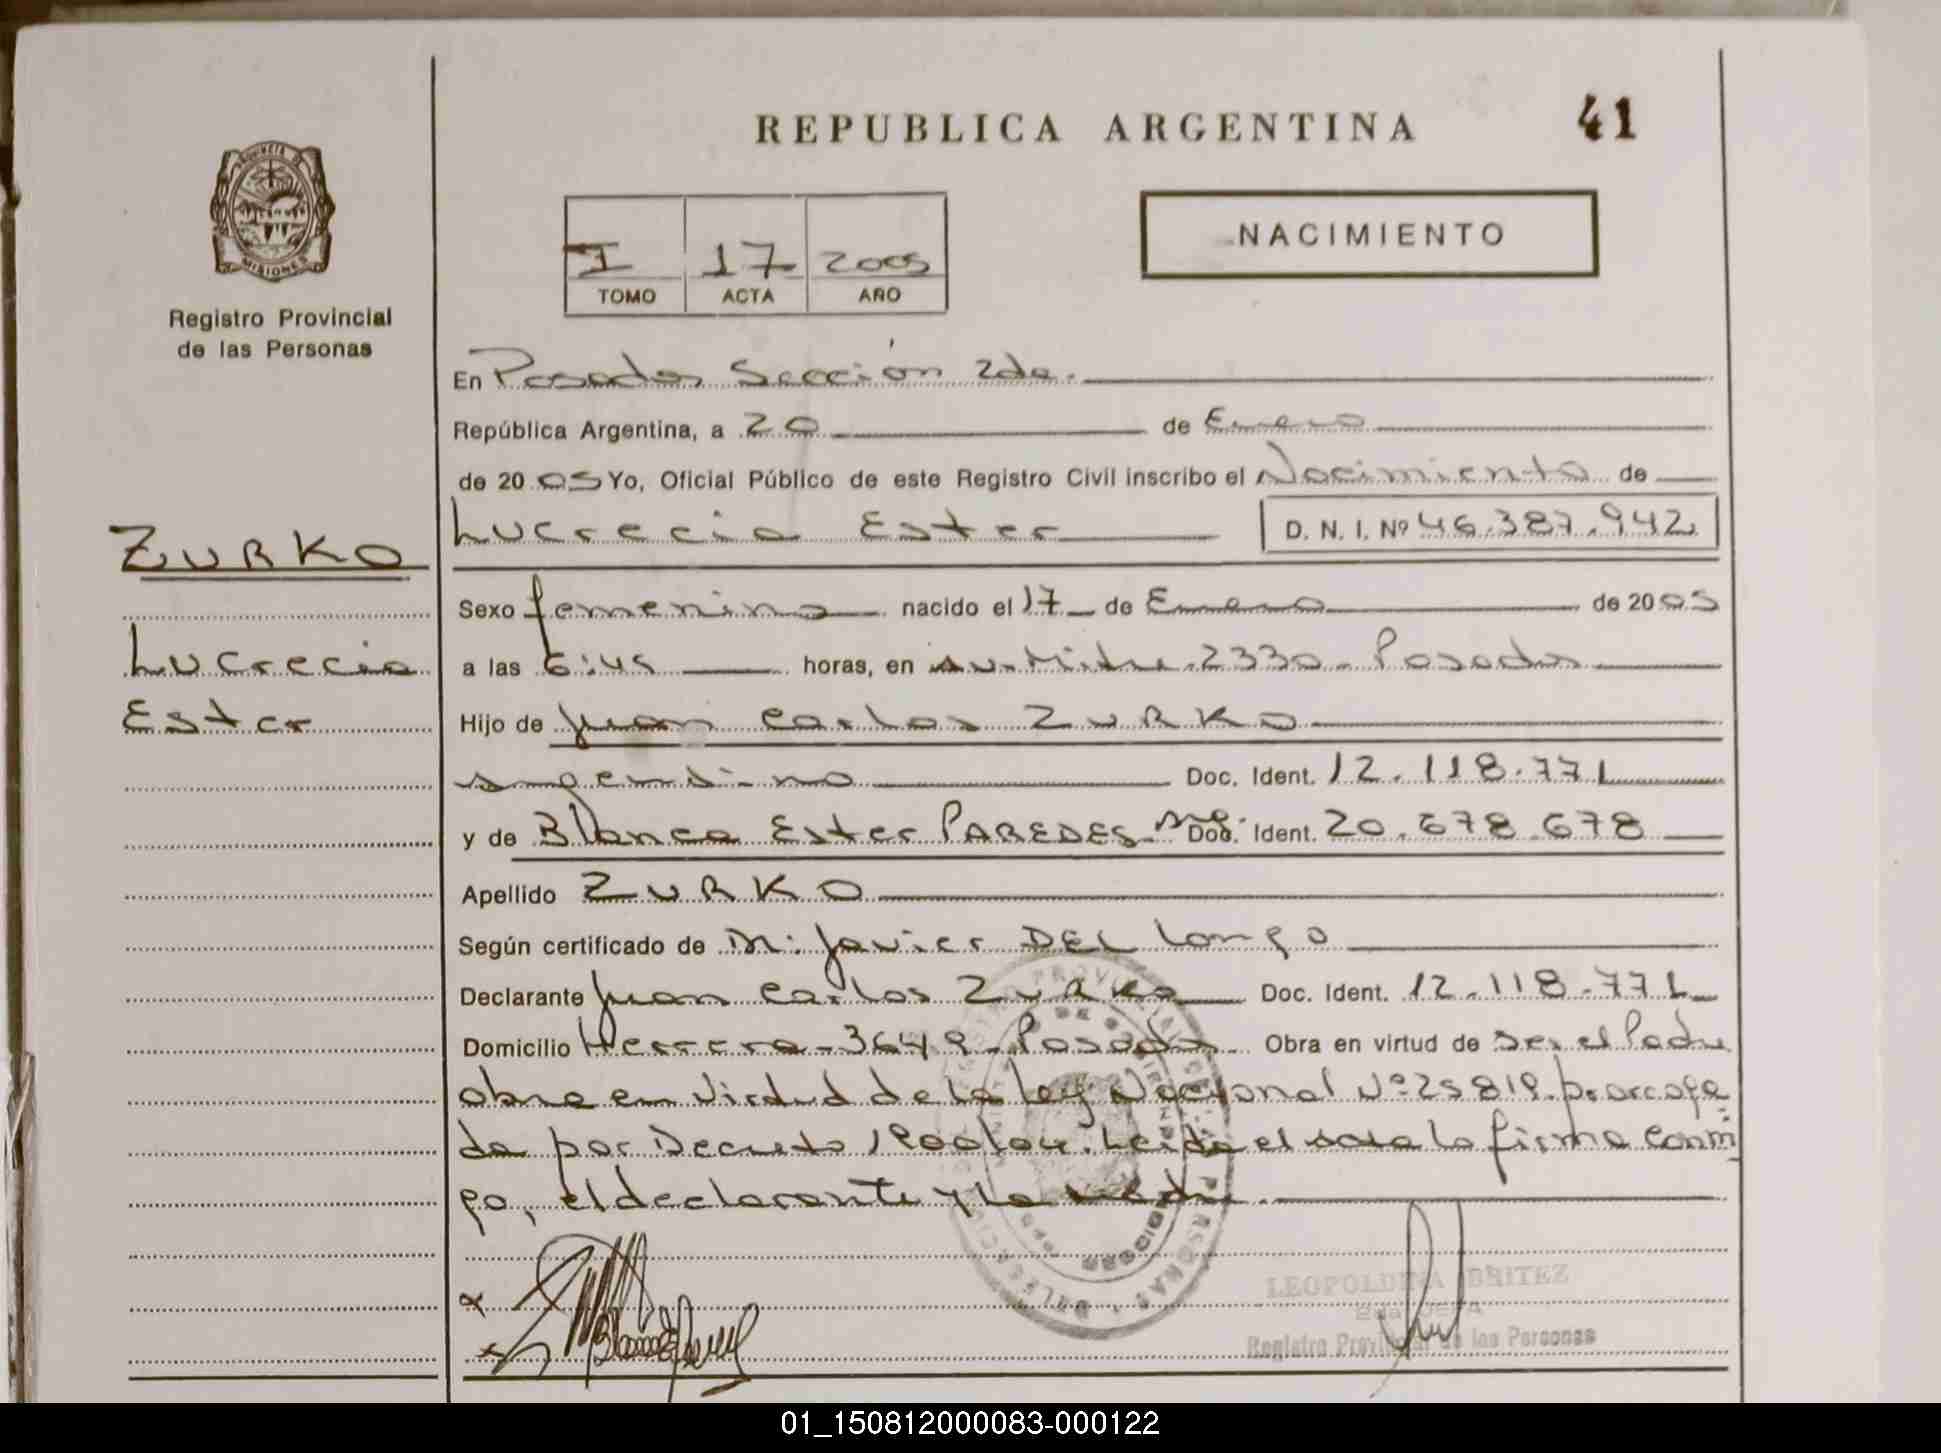 REPUBLICA ARGENTINA
41
PROVINCIA DE
MISIONES
Registro Provincial
de las Personas
I 17 2005
TOMO ACTA AÑO
NACIMIENTO
En Posadas Sección 2da.
República Argentina, a 20 de Enero
de 2005 Yo, Oficial Público de este Registro Civil inscribo el Nacimiento de
Lucrecia Ester D. N. I. Nº 46.387.942
ZURKO
Lucrecia
Ester
Sexo femenino nacido el 17 de Enero de 2005
a las 6:45 horas, en Av. Mitre 2330 - Posadas
Hijo de Juan Carlos ZURKO
argentino Doc. Ident. 12.118.771
y de Blanca Ester PAREDES arg. Doc. Ident. 20.678.678
Apellido ZURKO
Según certificado de Dr. Javier DEL Longo
Declarante Juan Carlos Zurko Doc. Ident. 12.118.771
Domicilio Herrera - 3649 - Posadas Obra en virtud de ser el Padre
obra en virtud de la ley Nacional Nº 25819. prorroga
da por Decreto. Leída el acta la firma conmi
go, el declarante y la madre.
LEOPOLDINA BRITEZ
Registro Provincial de las Personas
01_150812000083-000122